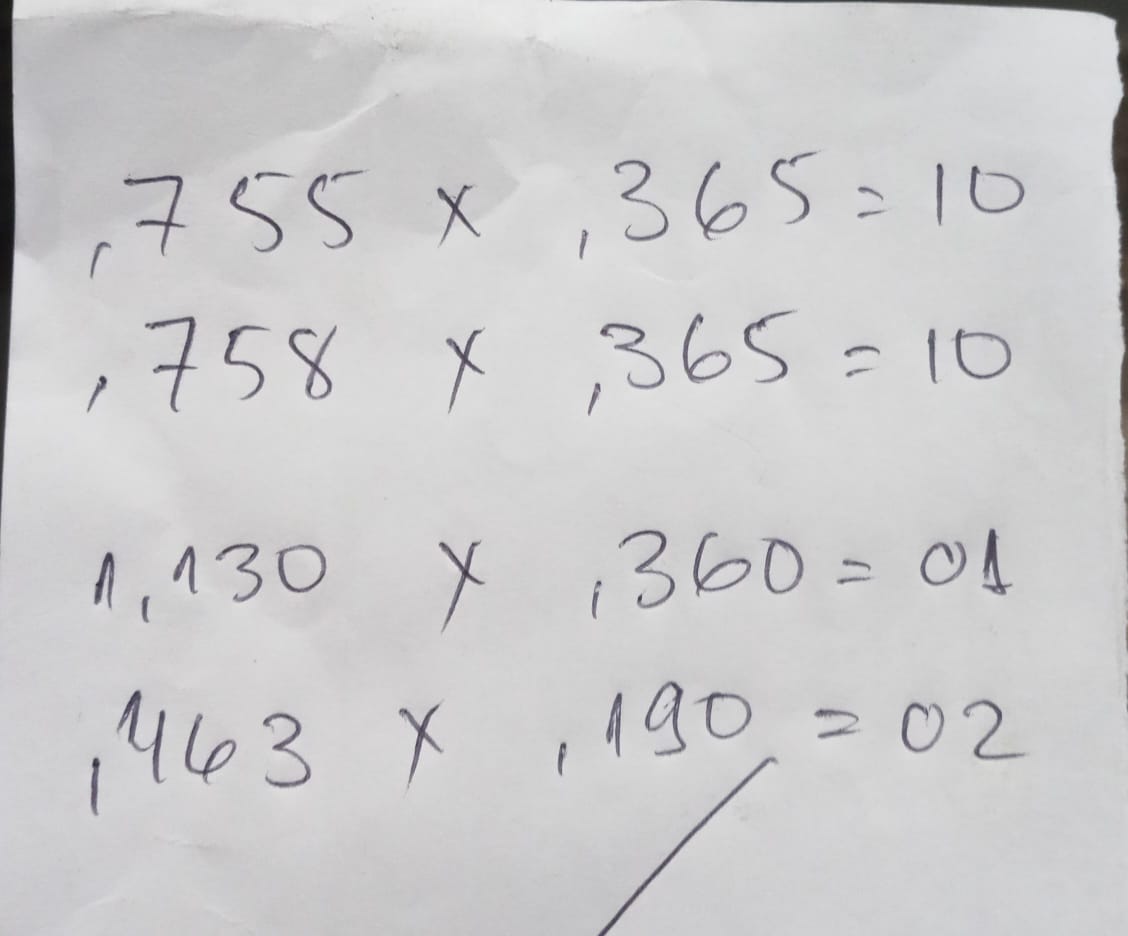 ,755 x ,365 = 10
,758 x ,365 = 10
1,130 x ,360 = 01
,463 x ,190 = 02